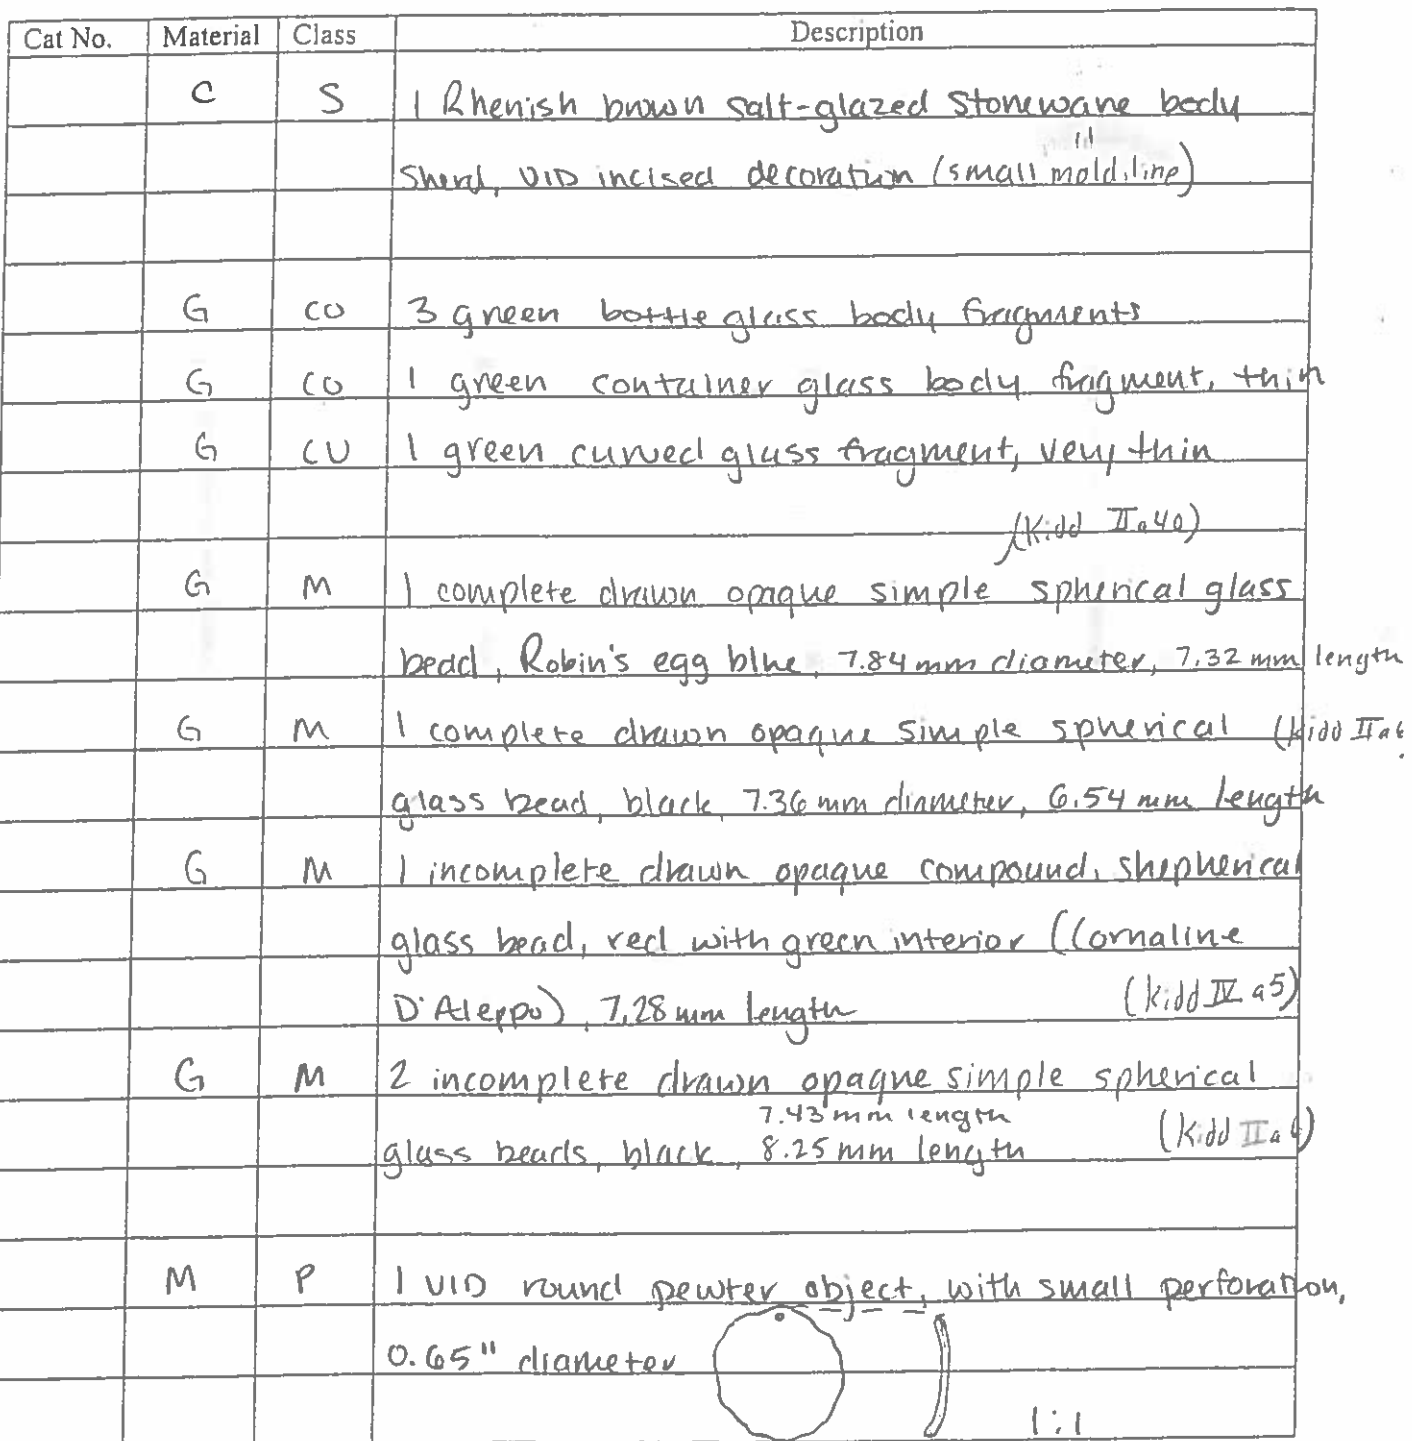 Cat No. Material Class Description
C S 1 Rhenish brown salt-glazed stoneware body
sherd, UID incised decoration (small mold line)
G CO 3 green bottle glass body fragments
G CO 1 green container glass body fragment, thin
G CU 1 green curved glass fragment, very thin
(Kidd IIa40)
G M 1 complete drawn opaque simple spherical glass
bead, Robin's egg blue, 7.84 mm diameter, 7.32 mm length
G M 1 complete drawn opaque simple spherical (Kidd IIa6
glass bead, black, 7.36 mm diameter, 6.54 mm length
G M 1 incomplete drawn opaque compound, shepherical
glass bead, red with green interior (Cornaline
D'Aleppo), 7.28 mm length (Kidd IVa5)
G M 2 incomplete drawn opaque simple spherical
7.43 mm length
glass beads, black, 8.25 mm length (Kidd IIa6)
M P 1 UID round pewter object, with small perforation,
0.65" diameter
1:1